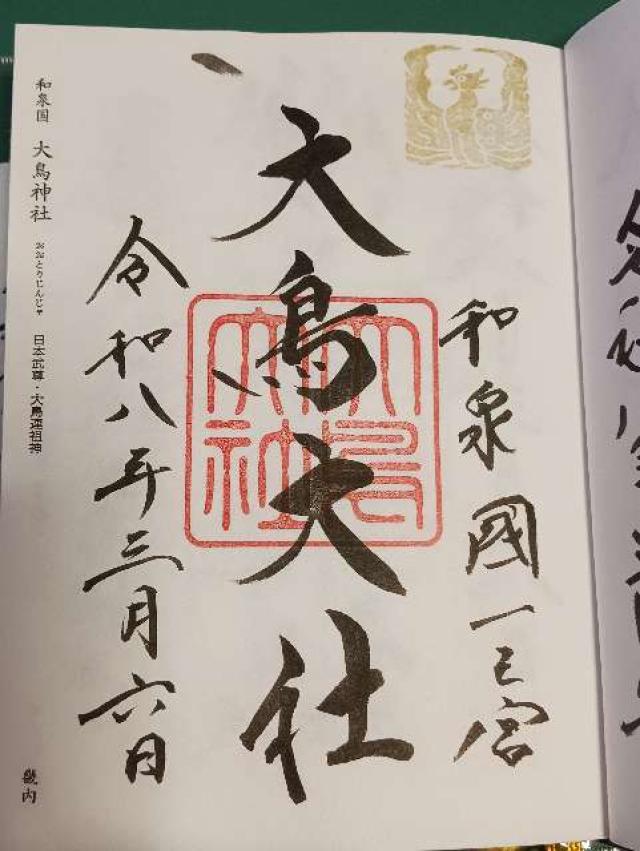 和泉國一之宮
大鳥大社
大鳥大社
令和八年三月六日
和泉国 大鳥神社 おおとりじんじゃ 日本武尊・大鳥連祖神
畿内